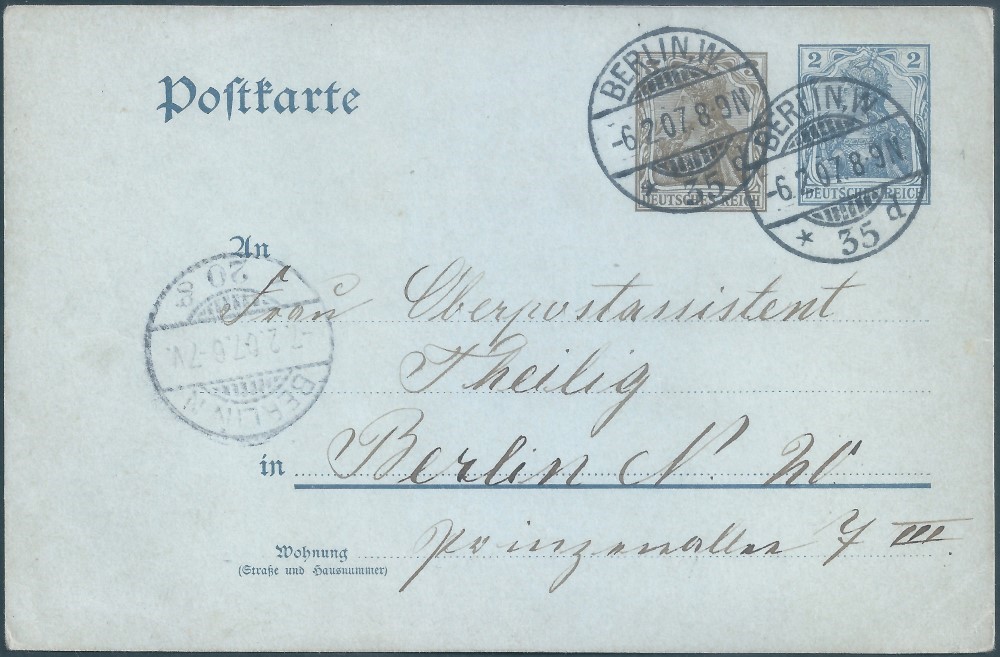 Postkarte
BERLIN, W
-6.2.07. 8-9N
* 35 d
3
DEUTSCHES REICH
2 2
DEUTSCHES REICH
BERLIN, W
-6.2.07. 8-9N
* 35 d
An
Frau Oberpostassistent
Theilig
BERLIN N
-7.2.07. 6-7V.
20
in Berlin N. 20.
Wohnung Prinzenallee 7 III.
(Straße und Hausnummer)